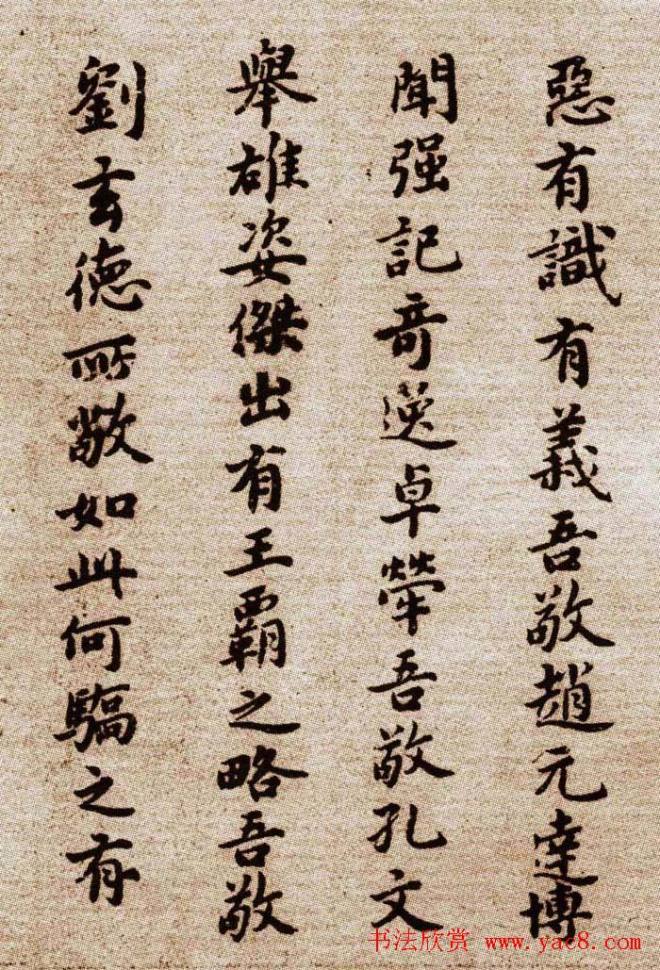 惡有識有義吾敬趙元達博
聞强記奇逸卓犖吾敬孔文
舉雄姿傑出有王霸之略吾敬
劉玄德所敬如此何驕之有
书法欣赏 www.yac8.com